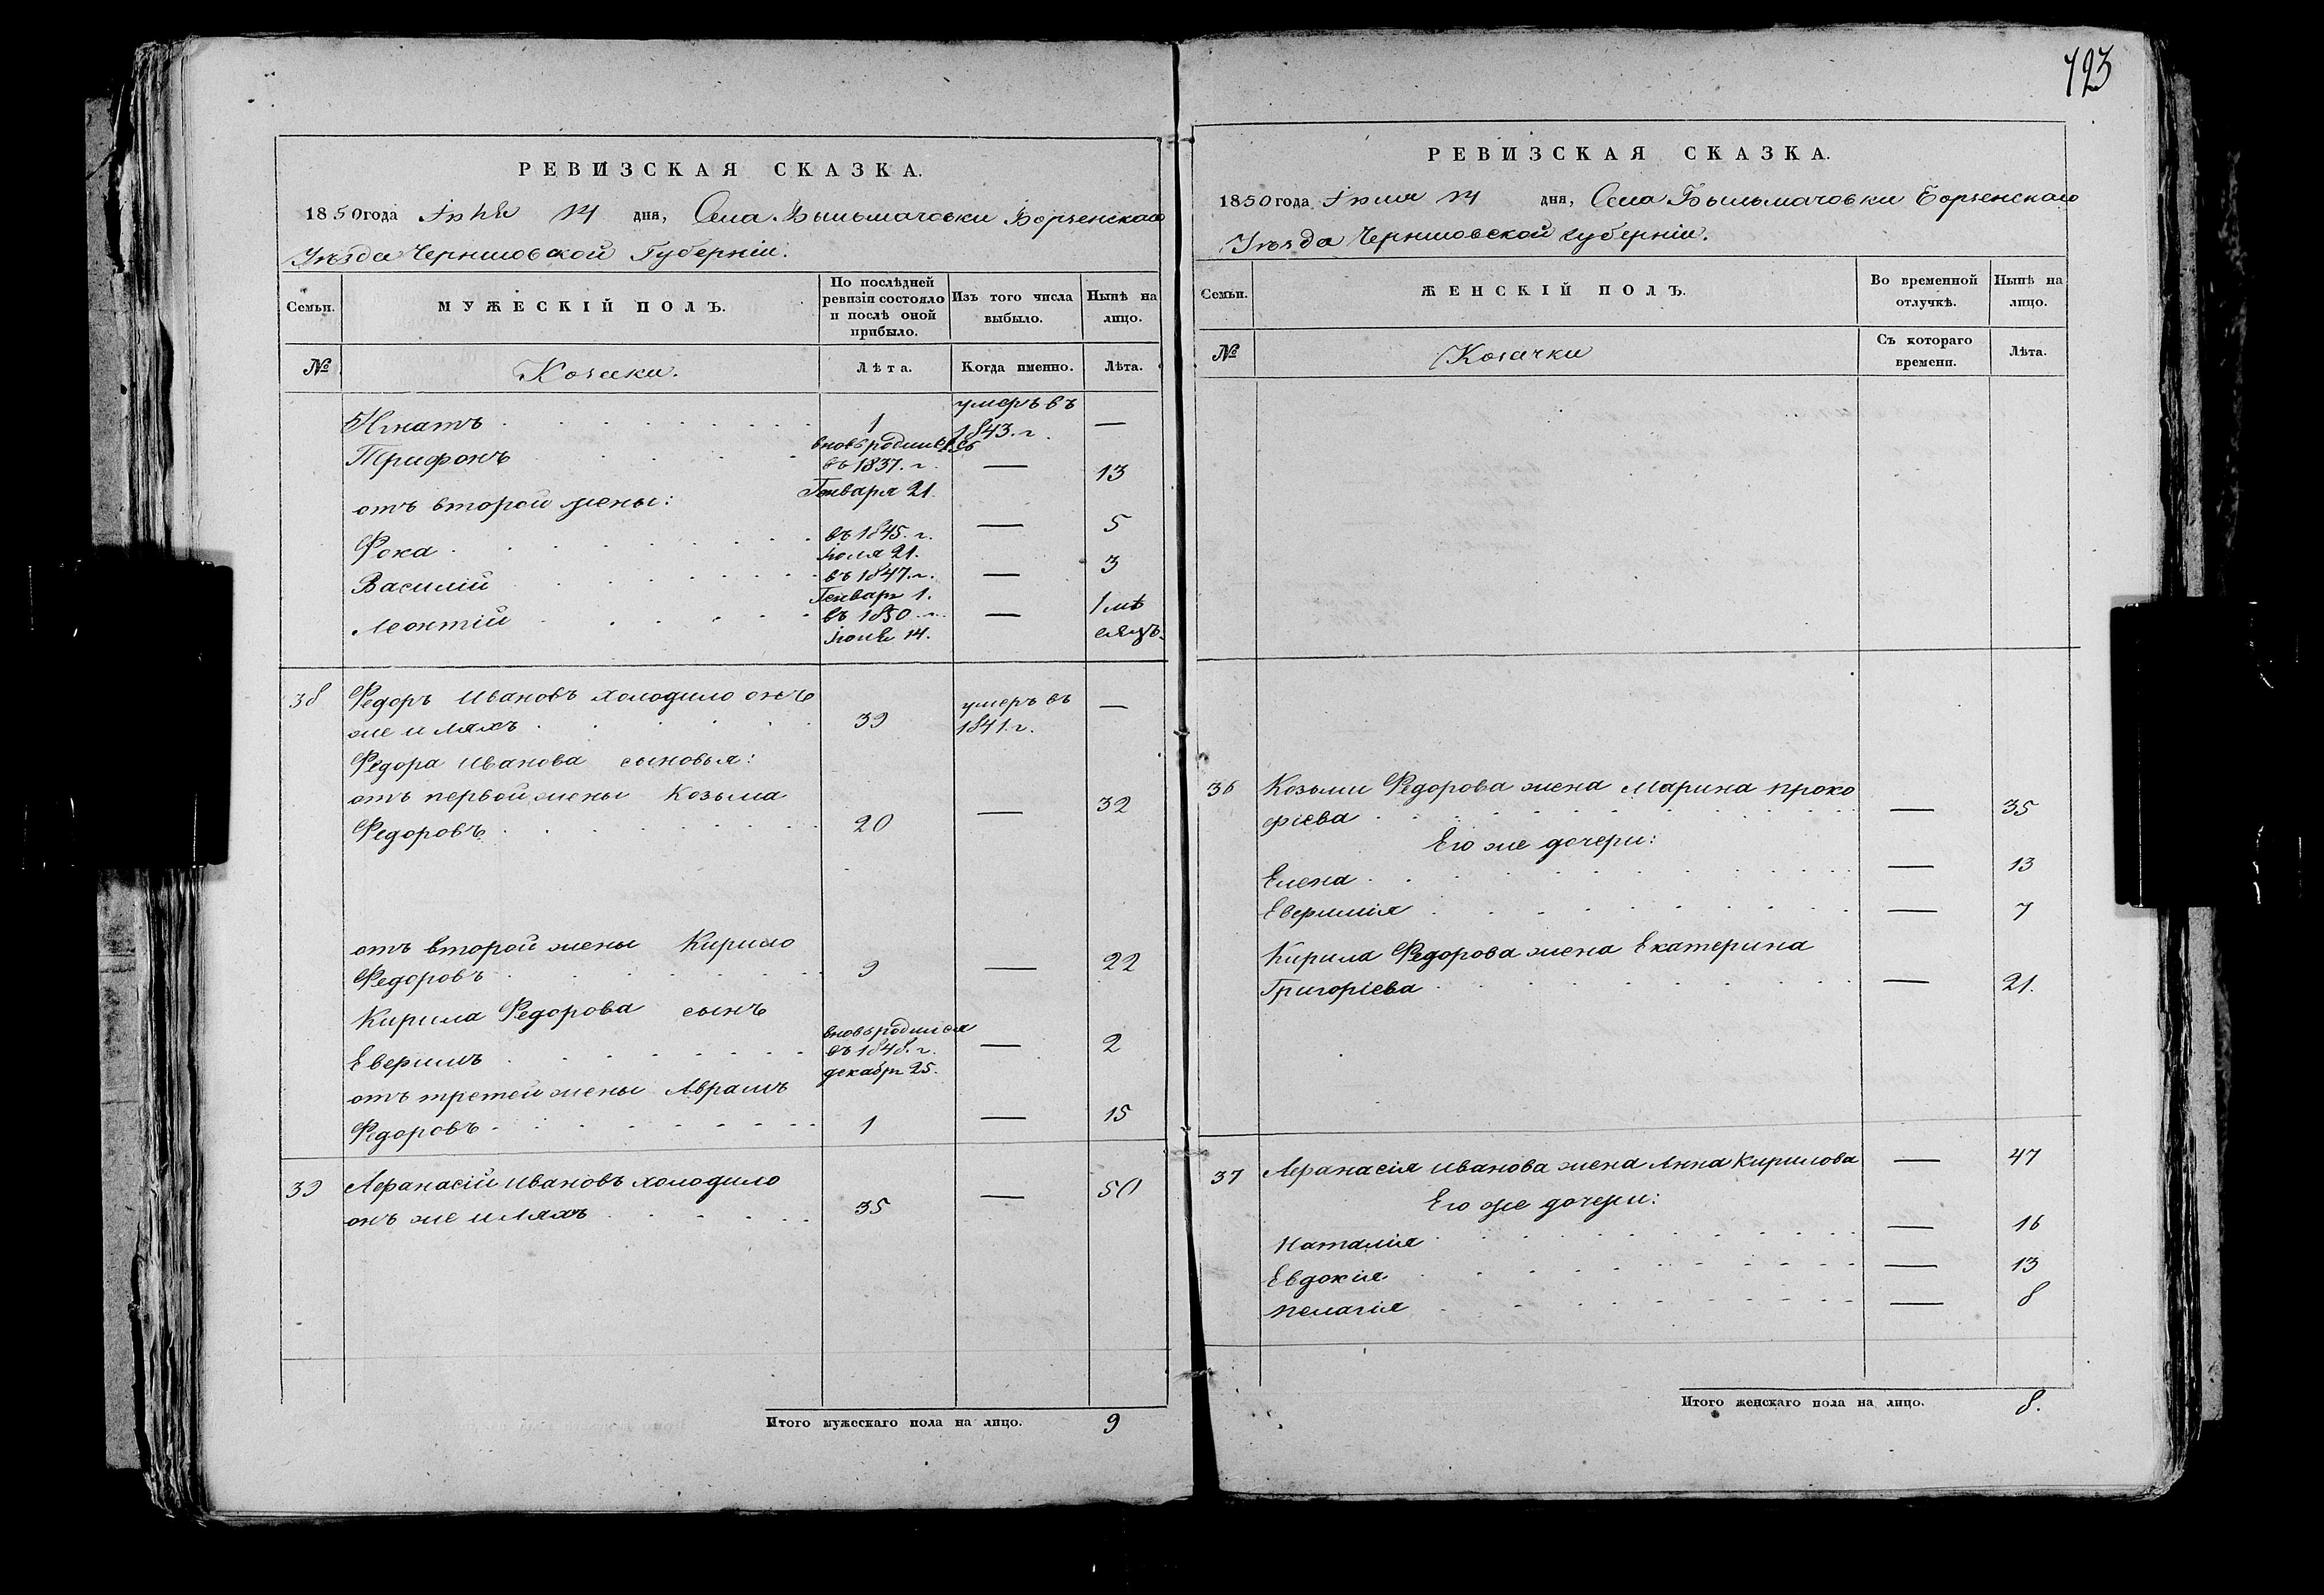 РЕВИЗСКАЯ СКАЗКА.
1850 года Іюля 14 дня, Села Быльмачовки Борзенскаго
Уѣзда Черниговской Губерніи.
Семьи.
МУЖЕСКІЙ ПОЛЪ.
По послѣдней
ревизіи состояло
и послѣ оной
прибыло.
Изъ того числа
выбыло.
Нынѣ на
лицо.
№
Козаки.
Лѣта.
Когда именно.
Лѣта.
Игнатъ 1 умеръ въ 1843. г. —
Трифонъ вновьродился въ 1837. г. Генваря 21. — 13
отъ второй жены:
Фока въ 1845. г. Іюля 21. — 5
Василій въ 1847. г. Генвар 1. — 3
Леонтій въ 1850 г. Іюня 14. — 1 мѣсяцъ.
38 Федоръ Ивановъ холодило онъ
же и ляхъ 39 умеръ въ 1841. г. —
Федора Иванова сыновья:
отъ первой жены Козьма
Федоровъ 20 — 32
отъ второй жены Кирило
Федоровъ 9 — 22
Кирила Федорова сынъ
Евфимъ вновьродился въ 1848. г. декабр 25. — 2
отъ третей жены Аврамъ
Федоровъ 1 — 15
39 Афанасій Ивановъ холодило
онъ же и ляхъ 35 — 50
Итого мужескаго пола на лицо. 9
123
РЕВИЗСКАЯ СКАЗКА.
1850 года Іюля 14 дня, Села Быльмачовки Борзенскаго
Уѣзда Черниговской Губерніи.
Семьи.
ЖЕНСКІЙ ПОЛЪ.
Во временной
отлучкѣ.
Нынѣ на
лицо.
№
Козачки
Съ котораго
времени.
Лѣта.
36 Козьми Федорова жена Марина проко
фіева — 35
Его же дочери:
Елена — 13
Евфимія — 7
Кирила Федорова жена Екатерина
Григоріева — 21.
37 Афанасія Иванова жена Анна Кирилова — 47
Его же дочери:
Наталія — 16
Евдокія — 13
Пелагія — 8
Итого женскаго пола на лицо. 8.